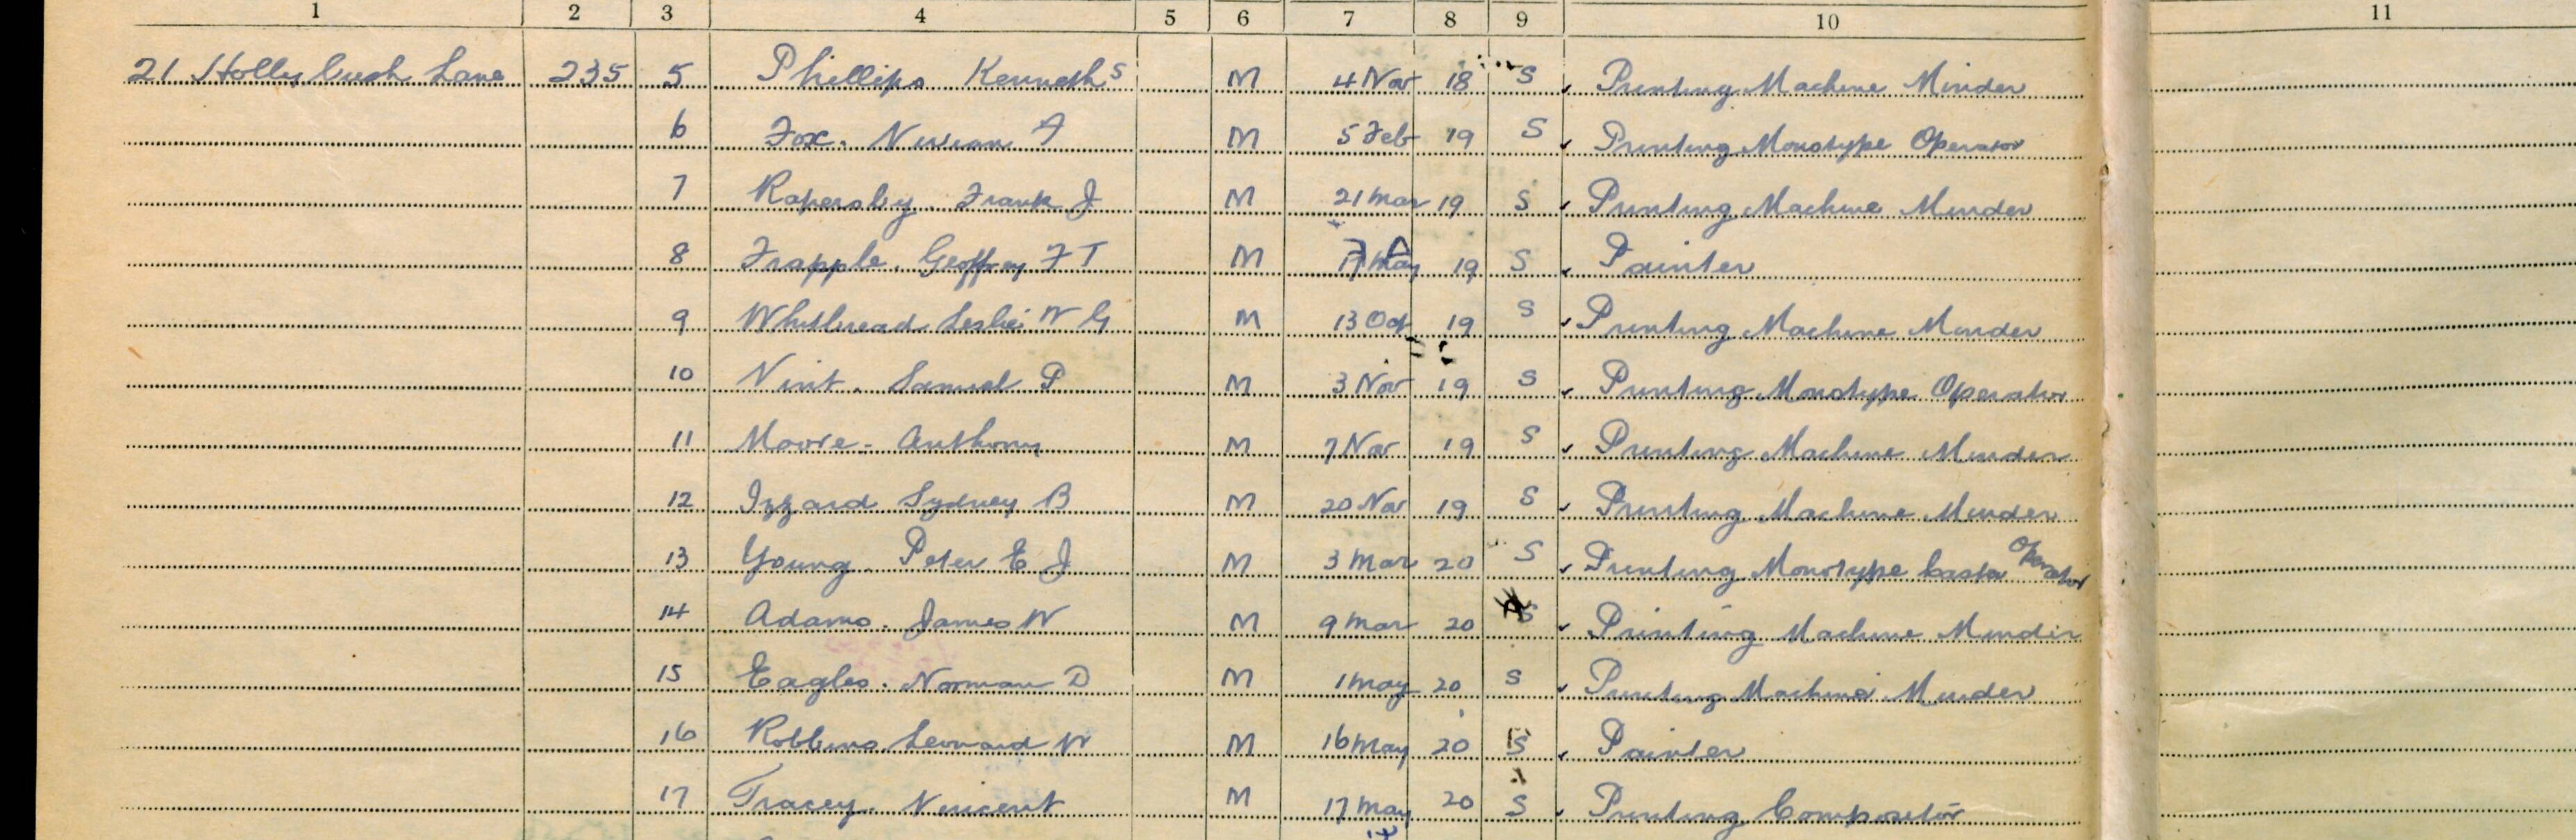 1 2 3 4 5 6 7 8 9 10 11
21 Hollybush Lane 235 5 Phillips Kenneth S M 4 Nov 18 S Printing Machine Minder
6 Fox. Vivian A M 5 Feb 19 S Printing Monotype Operator
7 Rapersby. Frank J M 21 Mar 19 S Printing Machine Minder
8 Frapple. Geoffrey F T M May 19 S Painter
9 Whitbread Leslie W G M 13 Oct 19 S Printing Machine Minder
10 Samuel P M 3 Nov 19 S Printing Monotype Operator
11 Moore - Anthony M 7 Nov 19 S Printing Machine Minder
12 Izzard Sydney B M 20 Nov 19 S Printing Machine Minder
13 Young. Peter E J M 3 Mar 20 S Printing Monotype Caster Operator
14 Adams. James W M 9 Mar 20 S Printing Machine Minder
15 Eagles. Norman D M 1 May 20 S Printing Machine Minder
16 Robbins. Leonard W M 16 May 20 S Painter
17 Tracey. Vincent M 17 May 20 S Printing Compositor